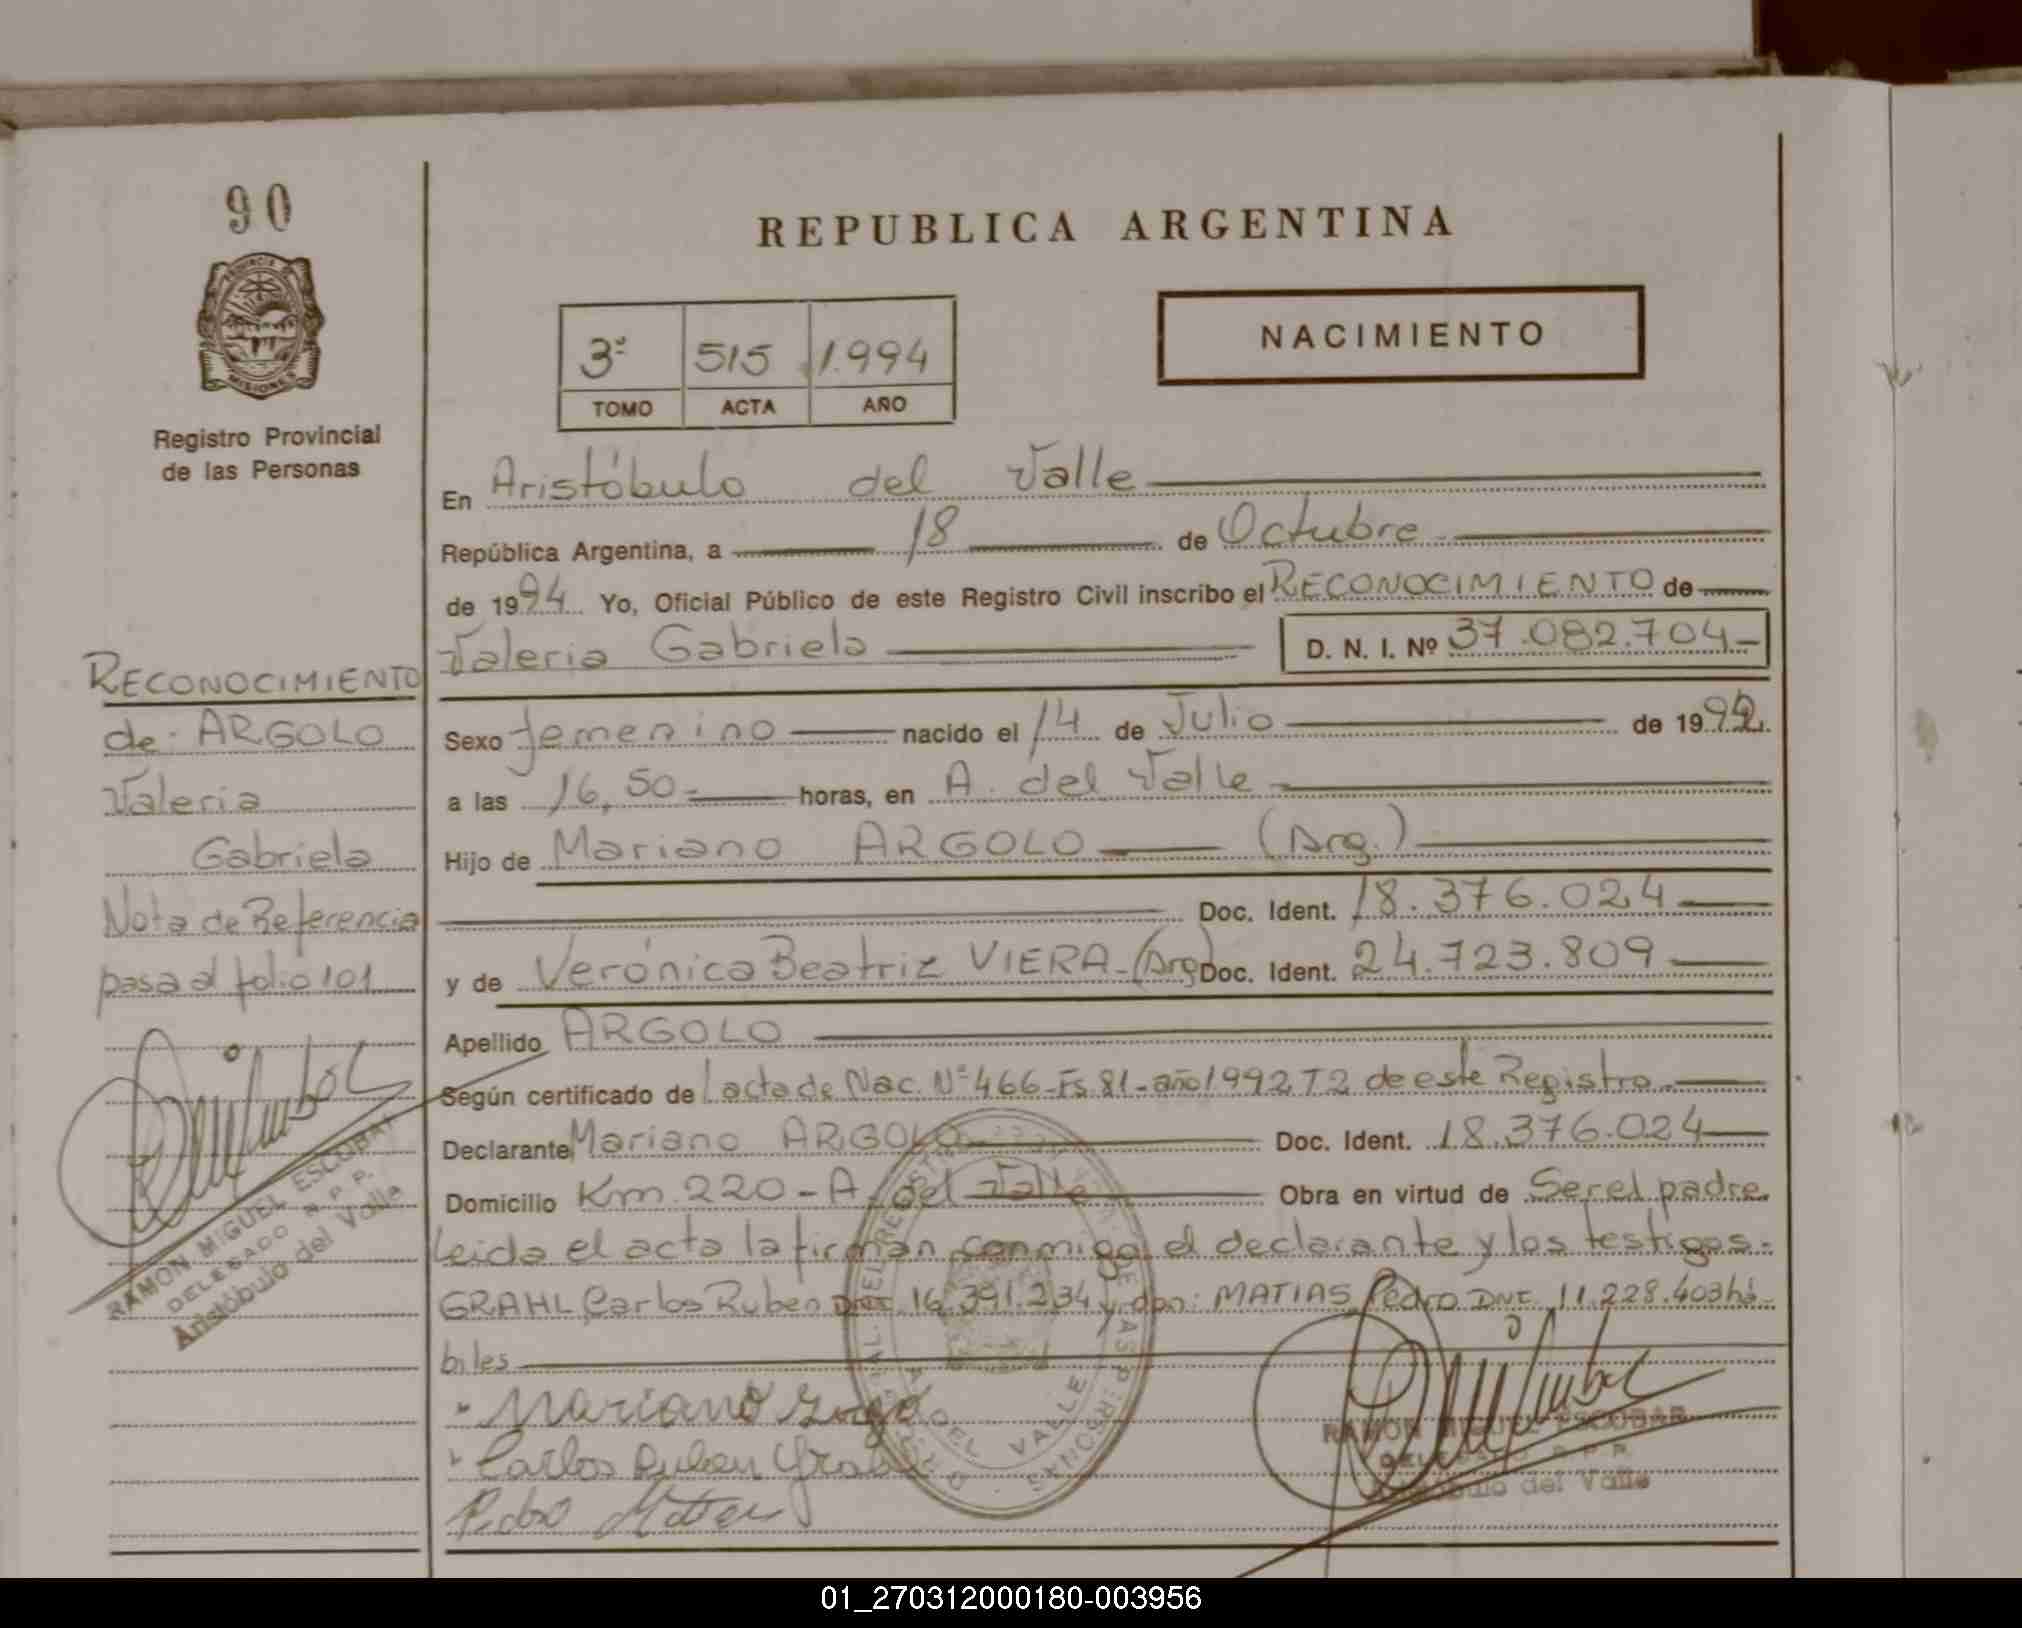 90
PROVINCIA DE
MISIONES
Registro Provincial
de las Personas
REPUBLICA ARGENTINA
3º 515 1.994
TOMO ACTA AÑO
NACIMIENTO
En Aristóbulo del Valle
República Argentina, a 18 de Octubre
de 1994 Yo, Oficial Público de este Registro Civil inscribo el RECONOCIMIENTO de
Valeria Gabriela D. N. I. Nº 37.082.704
Sexo femenino nacido el 14 de Julio de 1992.
a las 16,50 horas, en A. del Valle
Hijo de Mariano ARGOLO (Arg.)
Doc. Ident. 18.376.024
y de Verónica Beatriz VIERA (Arg) Doc. Ident. 24.723.809
Apellido ARGOLO
Según certificado de acta de Nac. Nº 466-Fs 81-año 1992 T2 de este Registro
Declarante Mariano ARGOLO Doc. Ident. 18.376.024
Domicilio Km. 220 - A. del Valle Obra en virtud de Ser el padre
Leida el acta la firman conmigo el declarante y los testigos.
GRAHL Carlos Ruben DNI 16.391.234 y don: MATIAS Pedro DNI. 11.228.403 há-
biles
Mariano
Carlos Ruben Grahl
Pedro
RAMON MIGUEL ESCOBAR
DELEGADO R. P. P.
del Valle
RECONOCIMIENTO
de: ARGOLO
Valeria
Gabriela
Nota de Referencia
pasa al folio 101
RAMON MIGUEL ESCOBAR
DELEGADO R. P. P.
Aristóbulo del Valle
01_270312000180-003956